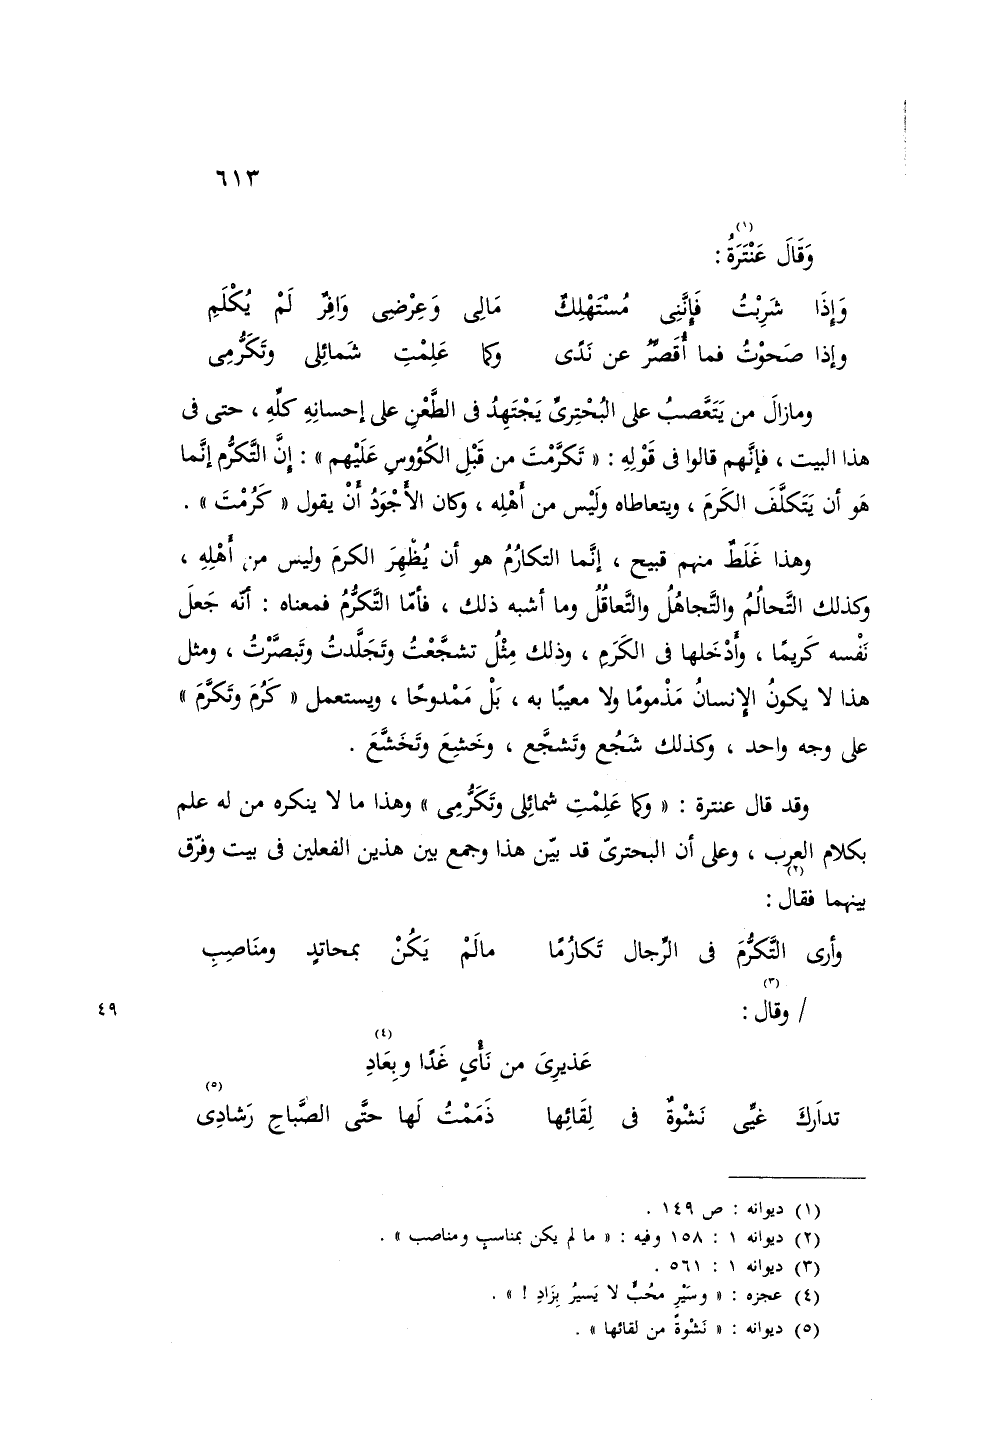 ٦١٣
(١)
وَقَالَ عَنْتَرَةُ :
وَإِذَا شَرِبْتُ فَإِنَّنِى مُسْتَهْلِكٌ مَالِى وَعِرْضِى وَافِرٌ لَمْ يُكْلَمِ
وإذا صَحَوْتُ فما أُقَصِّرُ عن نَدًى وكما عَلِمْتِ شَمائِلِى وتَكَرُّمِى
ومازالَ من يَتَعَّصبُ على البُحْترِىِّ يَجْتَهِدُ فى الطَّعْنِ على إحسانِهِ كلِّهِ ، حتى فى
هذا البيت ، فإنَّهم قالوا فى قَوْلِهِ : « تَكَرَّمْتَ من قَبْلِ الكُؤوسِ عَلَيْهِم » : إنَّ التَّكَرُّم إنَّما
هَو أن يَتَكلَّفَ الكَرمَ ، ويتعاطاه ولَيْس من أهْلِه ، وكان الأَجْوَدُ أَنْ يقول « كَرُمْتَ » .
وهذا غَلَطٌ منهم قبيح ، إنَّما التكارُمُ هو أن يُظْهِرَ الكرمَ وليس من أَهْلِهِ ،
وكذلك التَّحالُمُ والتَّجاهُلُ والتَّعاقُلُ وما أشبه ذلك ، فأمّا التَّكرُّمُ فمعناه : أنّه جَعلَ
نَفْسه كَريمًا ، وأَدْخَلها فى الكَرَمِ ، وذلك مِثْلُ تشجَّعْتُ وتَجَلَّدتُ وتَبصَّرْتُ ، ومثل
هذا لا يكونُ الإنسانُ مَذْمومًا ولا معيبًا به ، بَلْ مَمْدوحًا ، ويستعمل « كَرُمَ وتَكرَّمَ »
على وجه واحد ، وكذلك شَجُع وتَشجَّع ، وخَشِعَ وتَخَشَّعَ .
وقد قال عنترة : « وكما عَلِمْتِ شمائلِى وتَكَرُّمِى » وهذا ما لا ينكره من له علم
بكلام العرب ، وعلى أن البحترىّ قد بيّن هذا وجمع بين هذين الفعلين فى بيت وفرّق
(٢)
بينهما فقال :
وأرى التَّكرُّمَ فى الرِّجال تَكارُمًا مالَمْ يَكُنْ بمحاتدٍ ومنَاصِبِ
(٣)
/ وقال : ٤٩
(٤)
عَذيرِىَ من نَأْىٍ غَدًا وبِعَادِ
(٥)
تدارَكَ غيِّى نَشْوةٌ فى لِقَائِها ذَممْتُ لَها حتَّى الصَّباحِ رَشادِى
(١) ديوانه : ص ١٤٩ .
(٢) ديوانه ١ : ١٥٨ وفيه : « ما لم يكن بمناسبٍ ومناصب » .
(٣) ديوانه ١ : ٥٦١ .
(٤) عجزه : « وسَيْرِ محُبٍّ لا يَسيرُ بِزَادِ ! » .
(٥) ديوانه : « نَشْوةً من لقائها » .